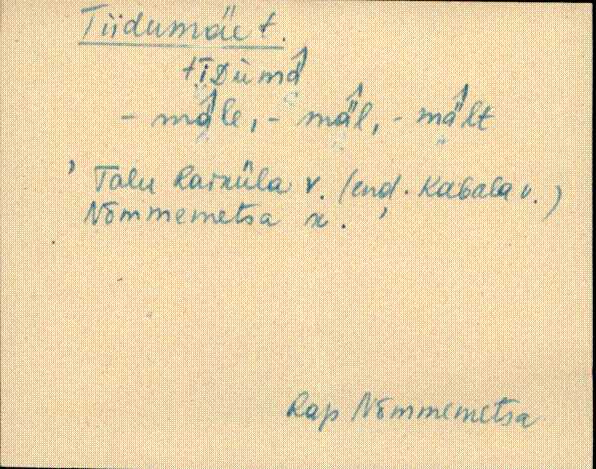 Tiidumäe t.
tīDumä̂
- mä̂le, - mä̂l, - mä̂lt
' Talu Raiküla v. (end. Kabala v.)
Nõmmemetsa k. '
Rap Nõmmemetsa